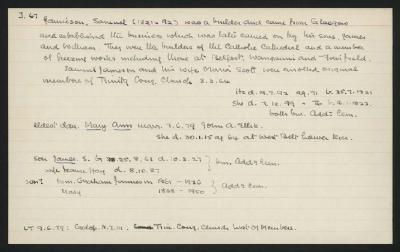 J. 67
Jamieson, Samuel (1821-92) was a builder and came from Glasgow
and established the business which was later carried on by his sons, James
and William. They were the builders of the Catholic Cathedral and a number
of freezing works including those at Belfast, Wanganui and Fairfield.
Samuel Jamieson and his wife Maria Scott were enrolled original
members of Trinity Cong. Church 2.2.64
He d. 19.7.92 ag. 71
She d. 7.12.99
both bur. Add. Cem.
eldest dau. Mary Ann marr. 7.6.79 John A. Ellis.
She d. 30.1.15 ag 64 at West Belt Lower Linn.
son James. S. G d. 10.2.27
wife Jeanie Hay d. 8.10.27
bur. Adds. Cem.
son? Wm. Graham Jamieson 1861 - 1926
Mary 1868 - 1950
Adds. Cem.
LT 9.6.79: Trin. Cong. Church List of Members.